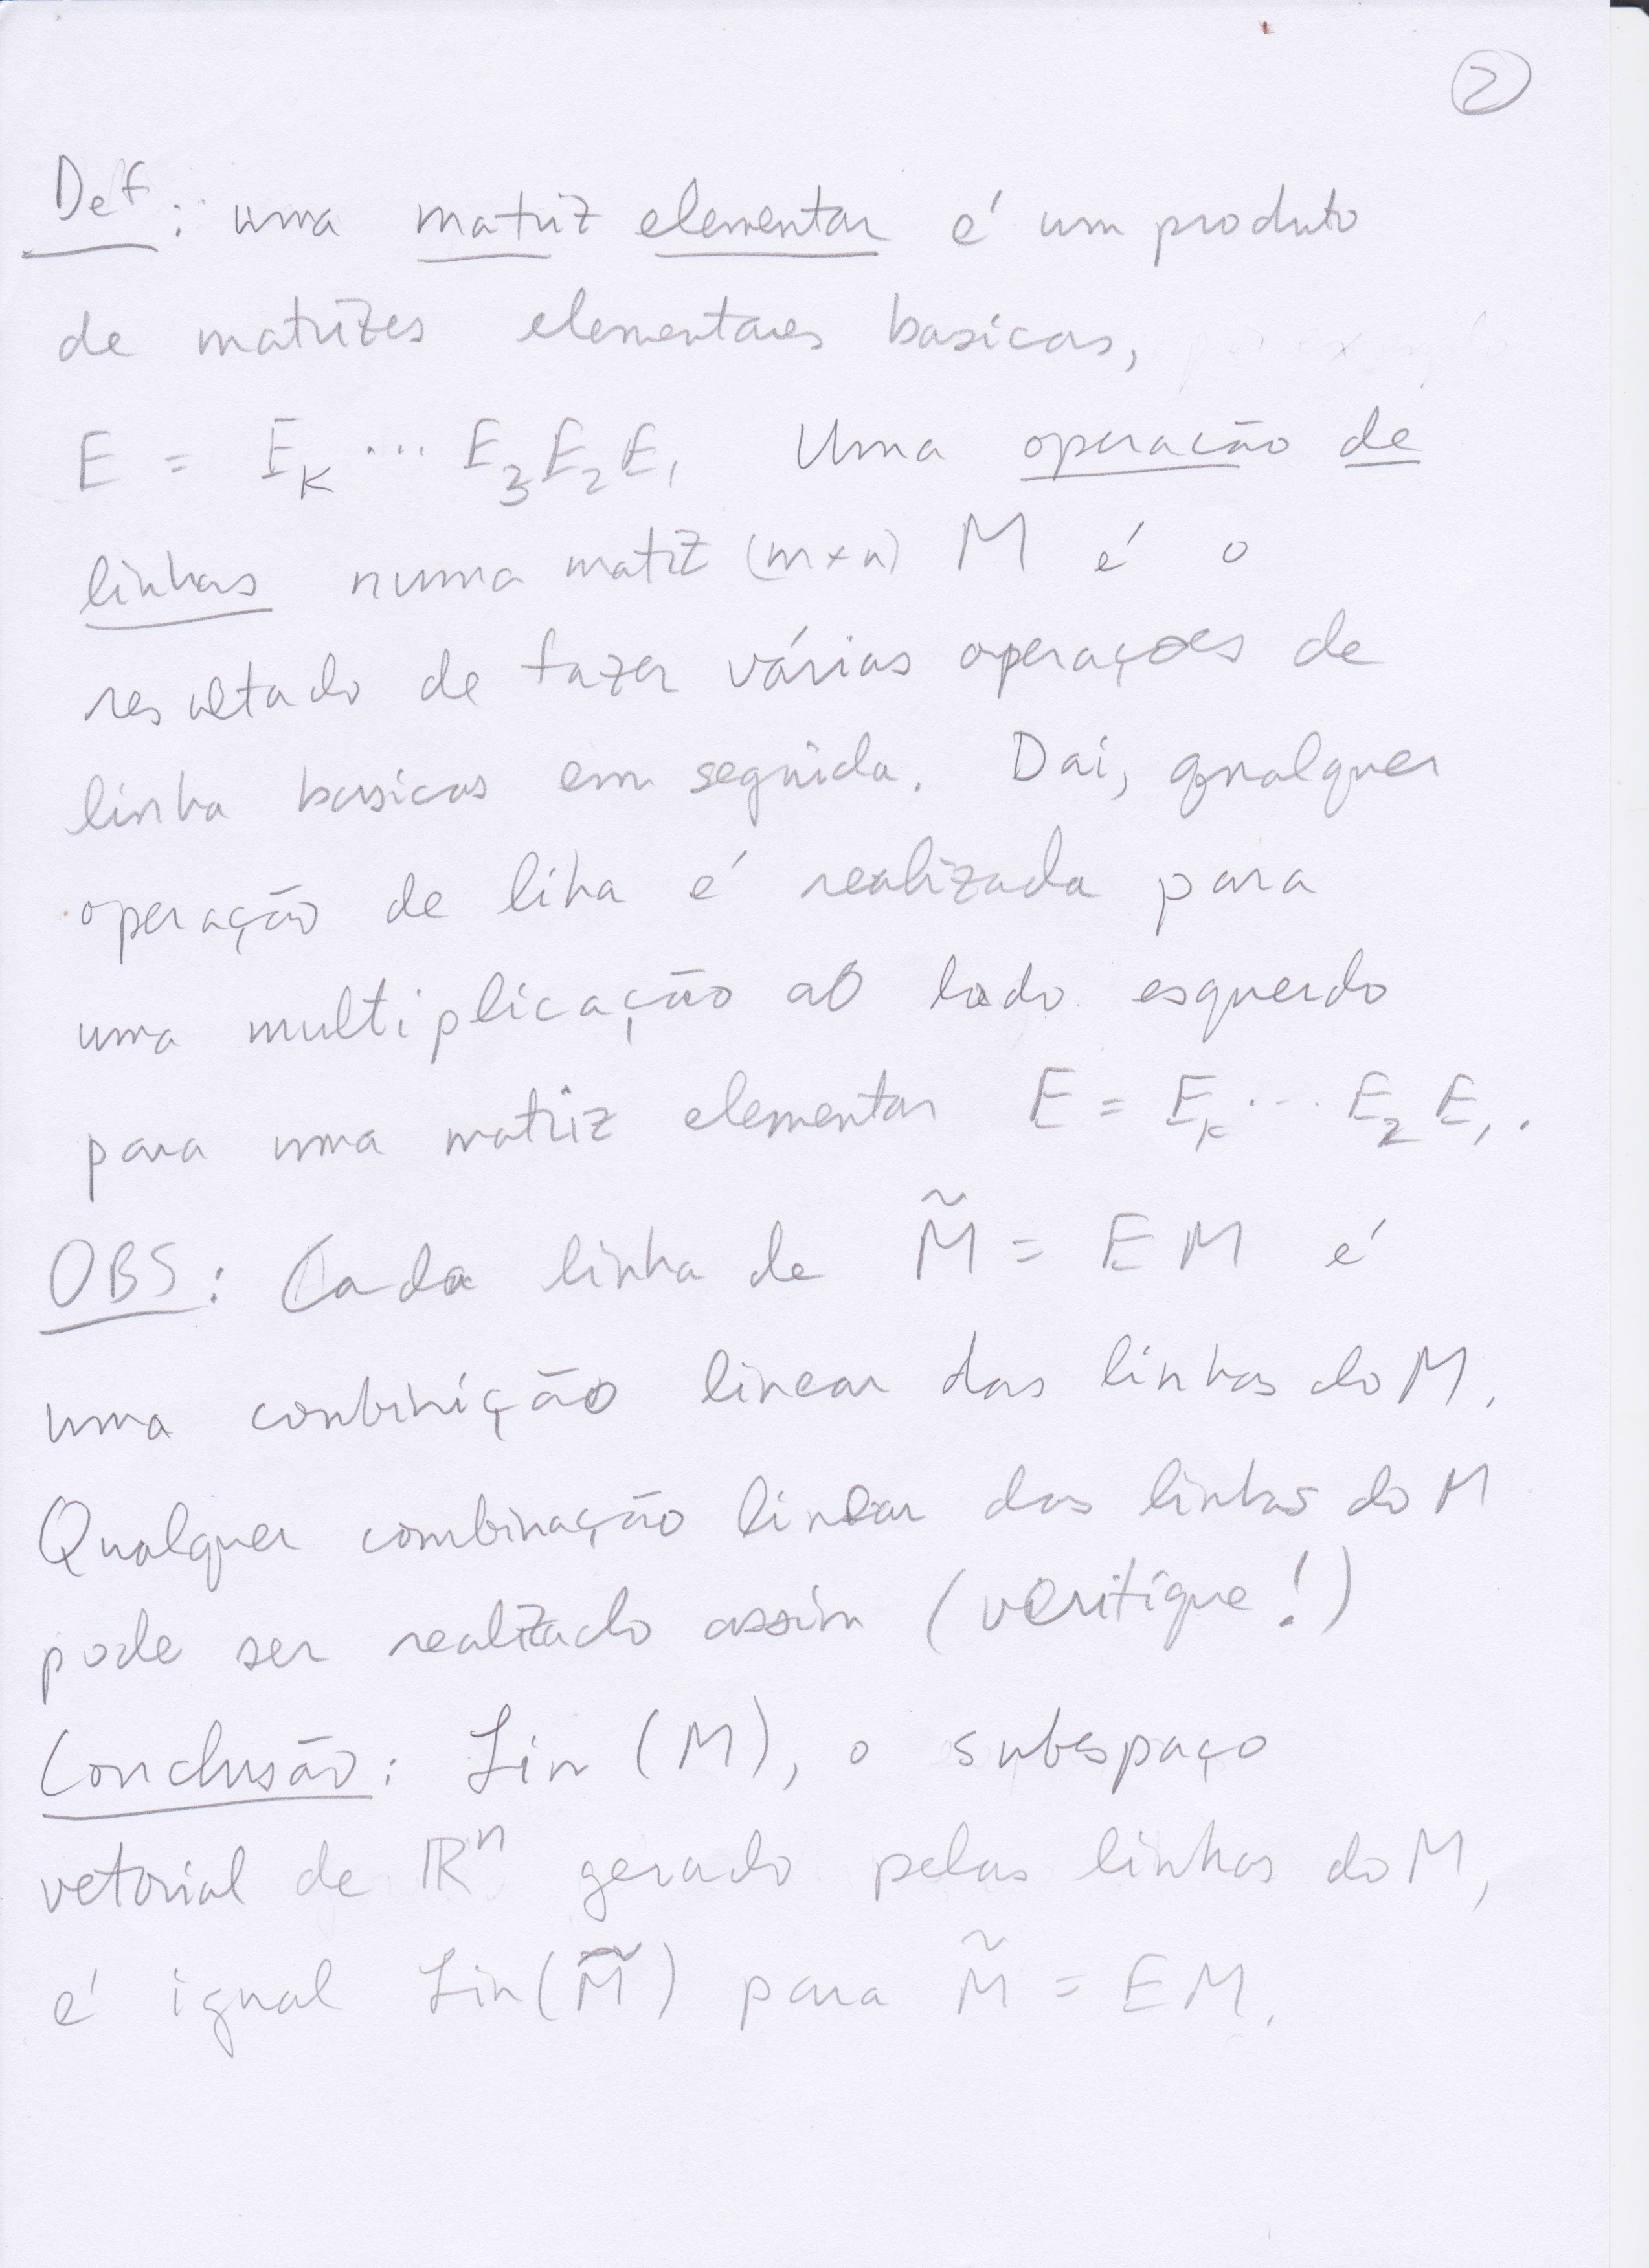 2
Def: uma matriz elementar é um produto
de matrizes elementares basicas,
E = E_k ... E_3 E_2 E_1 Uma operacão de
linhas numa matiz (m×n) M é o
resultado de fazer várias operações de
linha basicas em seguida. Dai, qualquer
operação de liha é realizada para
uma multiplicação ao lado esquerdo
para uma matriz elementar E = E_k ... E_2 E_1.
OBS: Cada linha de M̃ = E M é
uma conbinição linear das linhas do M.
Qualquer combinação linear das linhas do M
pode ser realizado assim (verifique!)
Conclusão: Lin (M), o subespaço
vetorial de ℝⁿ gerado pelas linhas do M,
é igual Lin(M̃) para M̃ = E M.